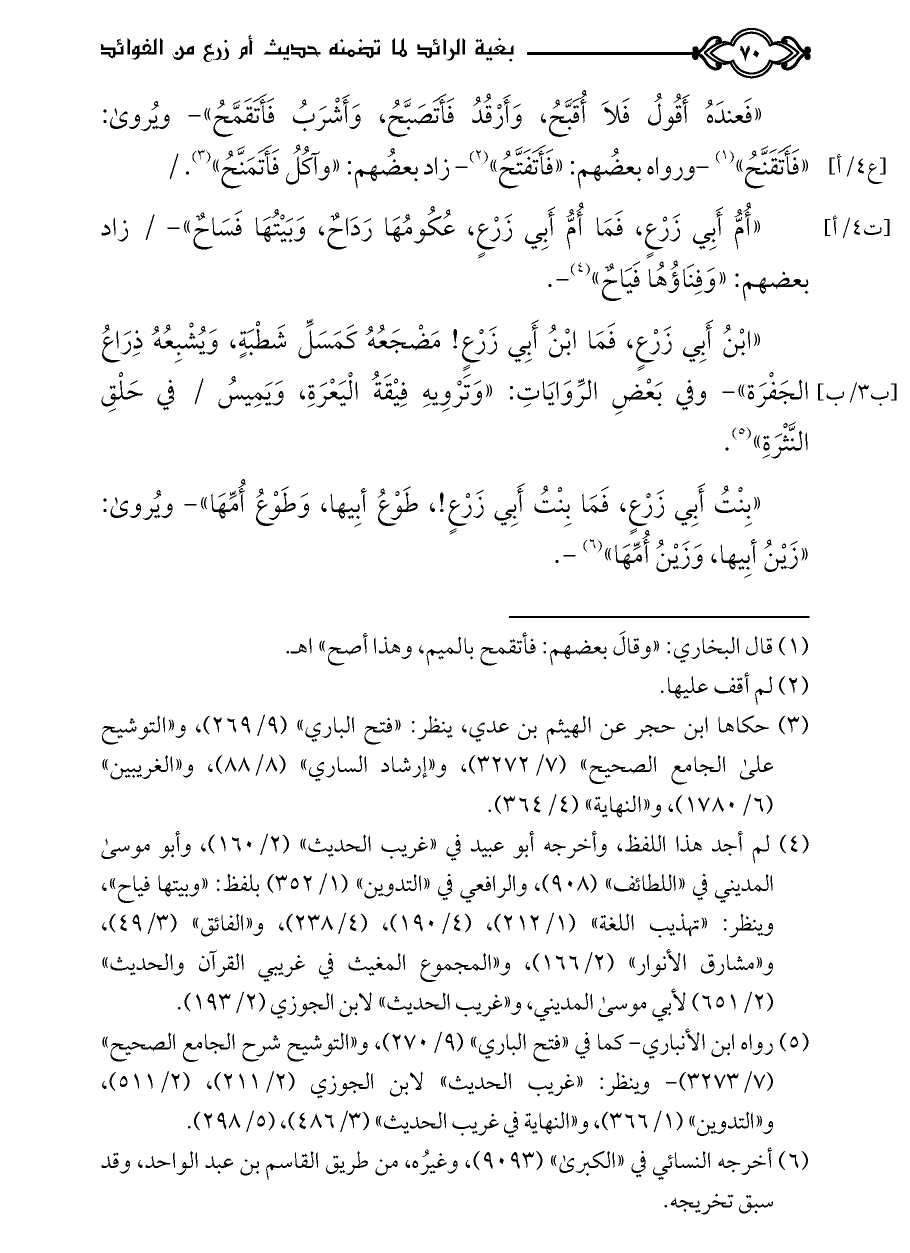 ٧٠ بغية الرائد لما تضمنه حديث أم زرع من الفوائد
«فَعندَهُ أَقُولُ فَلاَ أُقَبَّحُ، وَأَرْقُدُ فَأَتَصَبَّحُ، وَأَشْرَبُ فَأَتَقَمَّحُ»- ويُروىٰ:
[ع٤/ أ] «فَأَتَقَنَّحُ»(١) -ورواه بعضُهم: «فَأَتَفَتَّحُ»(٢)- زاد بعضُهم: «وآكُلُ فَأَتَمَنَّحُ»(٣). /
[ت٤/ أ] «أُمُّ أَبِي زَرْعٍ، فَمَا أُمُّ أَبِي زَرْعٍ، عُكُومُهَا رَدَاحٌ، وَبَيْتُهَا فَسَاحٌ»- / زاد
بعضهم: «وَفِنَاؤُهُا فَيَاحٌ»(٤)-.
«ابْنُ أَبِي زَرْعٍ، فَمَا ابْنُ أَبِي زَرْعٍ! مَضْجَعُهُ كَمَسَلِّ شَطْبَةٍ، وَيُشْبِعُهُ ذِرَاعُ
[ب٣/ ب] الجَفْرَة»- وفي بَعْضِ الرِّوَايَاتِ: «وَتَرْوِيهِ فِيْقَةُ الْيَعْرَةِ، وَيَمِيسُ / في حَلْقِ
النَّثْرَةِ»(٥).
«بِنْتُ أَبِي زَرْعٍ، فَمَا بِنْتُ أَبِي زَرْعٍ!، طَوْعُ أبِيها، وَطَوْعُ أُمِّهَا»- ويُروىٰ:
«زَيْنُ أبِيها، وَزَيْنُ أُمِّهَا»(٦) -.
(١) قال البخاري: «وقالَ بعضهم: فأتقمح بالميم، وهذا أصح» اهـ.
(٢) لم أقف عليها.
(٣) حكاها ابن حجر عن الهيثم بن عدي، ينظر: «فتح الباري» (٩/ ٢٦٩)، و«التوشيح
علىٰ الجامع الصحيح» (٧/ ٣٢٧٢)، و«إرشاد الساري» (٨/ ٨٨)، و«الغريبين»
(٦/ ١٧٨٠)، و«النهاية» (٤/ ٣٦٤).
(٤) لم أجد هذا اللفظ، وأخرجه أبو عبيد في «غريب الحديث» (٢/ ١٦٠)، وأبو موسىٰ
المديني في «اللطائف» (٩٠٨)، والرافعي في «التدوين» (١/ ٣٥٢) بلفظ: «وبيتها فياح»،
وينظر: «تهذيب اللغة» (١/ ٢١٢)، (٤/ ١٩٠)، (٤/ ٢٣٨)، و«الفائق» (٣/ ٤٩)،
و«مشارق الأنوار» (٢/ ١٦٦)، و«المجموع المغيث في غريبي القرآن والحديث»
(٢/ ٦٥١) لأبي موسىٰ المديني، و«غريب الحديث» لابن الجوزي (٢/ ١٩٣).
(٥) رواه ابن الأنباري- كما في «فتح الباري» (٩/ ٢٧٠)، و«التوشيح شرح الجامع الصحيح»
(٧/ ٣٢٧٣)- وينظر: «غريب الحديث» لابن الجوزي (٢/ ٢١١)، (٢/ ٥١١)،
و«التدوين» (١/ ٣٦٦)، و«النهاية في غريب الحديث» (٣/ ٤٨٦)، (٥/ ٢٩٨).
(٦) أخرجه النسائي في «الكبرىٰ» (٩٠٩٣)، وغيرُه، من طريق القاسم بن عبد الواحد، وقد
سبق تخريجه.